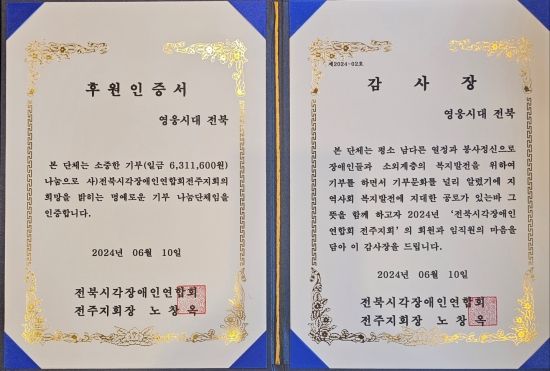 후원인증서
영웅시대 전북
본 단체는 소중한 기부(일금 6,311,600원)
나눔으로 사)전북시각장애인연합회전주지회의
희망을 밝히는 명예로운 기부 나눔단체임을
인증합니다.
2024년 06월 10일
전북시각장애인연합회
전주지회장 노 창 옥
제2024-02호
감 사 장
영웅시대 전북
본 단체는 평소 남다른 열정과 봉사정신으로
장애인들과 소외계층의 복지발전을 위하여
기부를 하면서 기부문화를 널리 알렸기에 지
역사회 복지발전에 지대한 공로가 있는바 그
뜻을 함께 하고자 2024년 ‘전북시각장애인
연합회 전주지회’의 회원과 임직원의 마음을
담아 이 감사장을 드립니다.
2024년 06월 10일
전북시각장애인연합회
전주지회장 노 창 옥